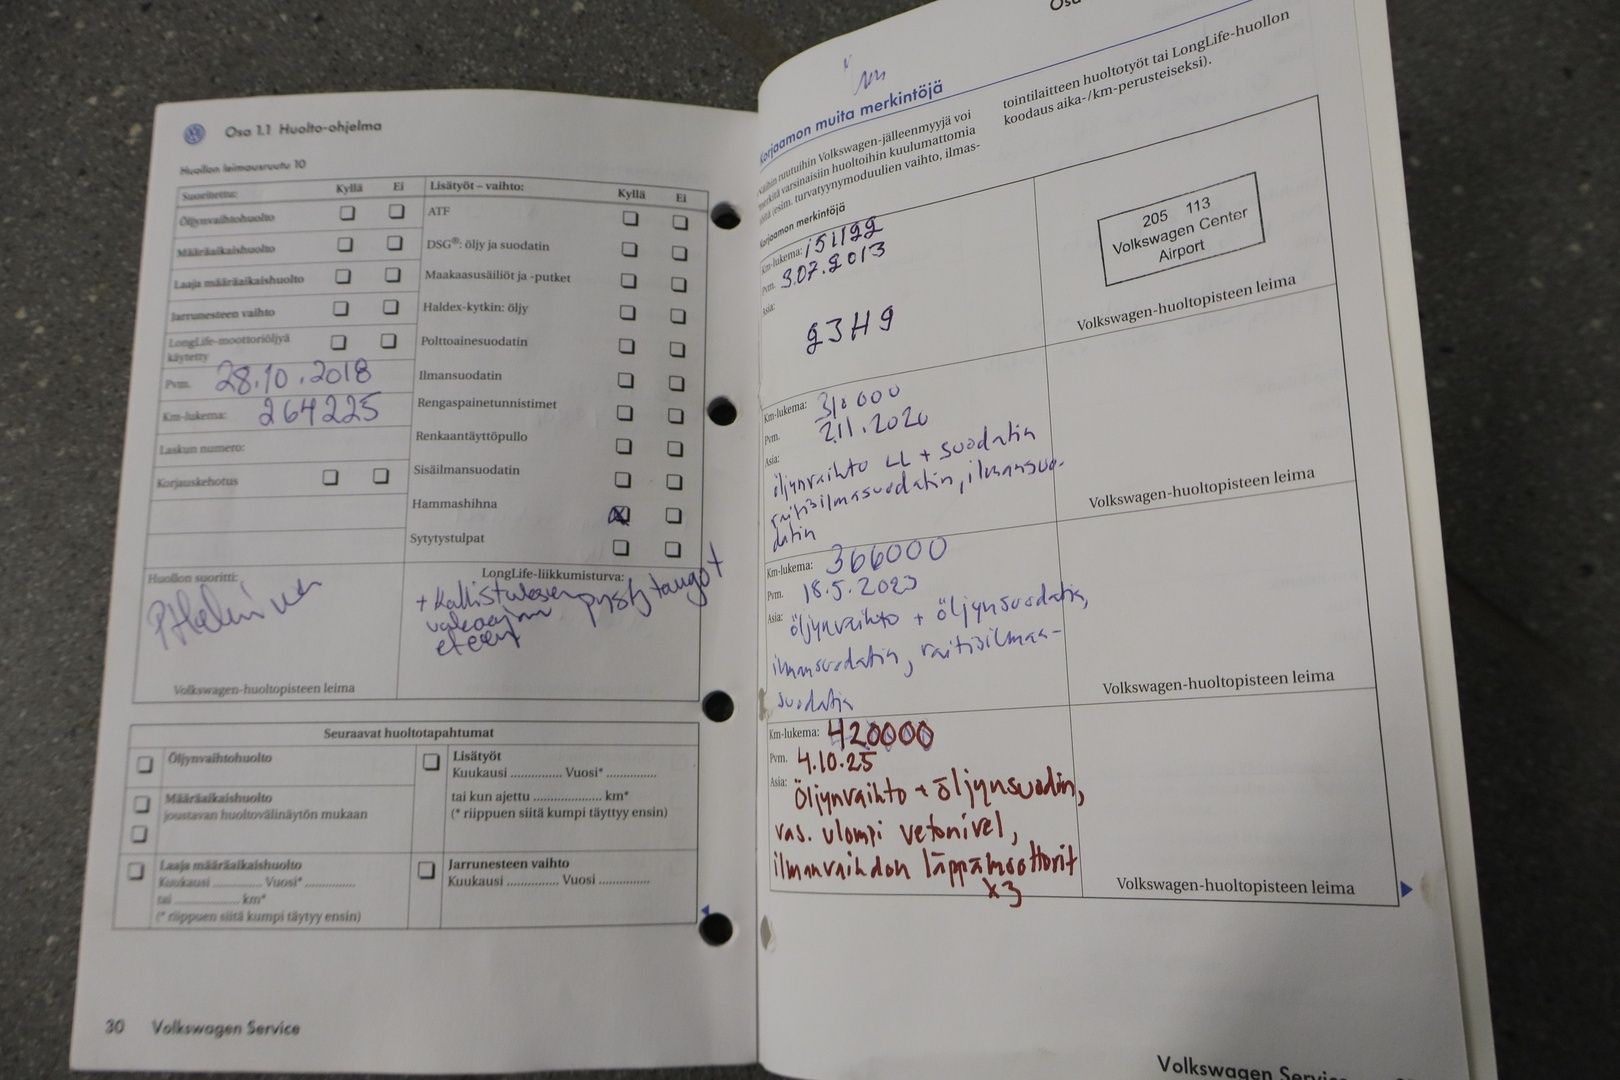 Osa 1.1 Huolto-ohjelma
Huollon leimausruutu 10
Suoritettu: Kyllä Ei
Öljynvaihtohuolto
Määräaikaishuolto
Laaja määräaikaishuolto
Jarrunesteen vaihto
LongLife-moottoriöljyä
käytetty
Pvm. 28.10.2018
Km-lukema: 264225
Laskun numero:
Korjauskehotus
Lisätyöt – vaihto: Kyllä Ei
ATF
DSG®: öljy ja suodatin
Maakaasusäiliöt ja -putket
Haldex-kytkin: öljy
Polttoainesuodatin
Ilmansuodatin
Rengaspainetunnistimet
Renkaantäyttöpullo
Sisäilmansuodatin
Hammashihna
Sytytystulpat
Huollon suoritti:
Volkswagen-huoltopisteen leima
LongLife-liikkumisturva:
+ Kallistuksen
vakaajan pystytangot
eteen
Seuraavat huoltotapahtumat
Öljynvaihtohuolto
Määräaikaishuolto
joustavan huoltovälinäytön mukaan
Laaja määräaikaishuolto
Kuukausi .............. Vuosi* ..............
tai .................... km*
(* riippuen siitä kumpi täytyy ensin)
Lisätyöt
Kuukausi .............. Vuosi* ..............
tai kun ajettu .................... km*
(* riippuen siitä kumpi täyttyy ensin)
Jarrunesteen vaihto
Kuukausi .............. Vuosi ..............
30 Volkswagen Service
Osa
Korjaamon muita merkintöjä
Näihin ruutuihin Volkswagen-jälleenmyyjä voi
merkitä varsinaisiin huoltoihin kuulumattomia
töitä (esim. turvatyynymoduulien vaihto, ilmas-
tointilaitteen huoltotyöt tai LongLife-huollon
koodaus aika-/km-perusteiseksi).
Korjaamon merkintöjä
Km-lukema: 151199
Pvm. 3.07.2013
Asia:
23H9
205 113
Volkswagen Center
Airport
Volkswagen-huoltopisteen leima
Km-lukema: 310000
Pvm. 2.11.2020
Asia:
öljynvaihto LL + suodatin
raitisilmasuodatin, ilmansuo-
datin
Volkswagen-huoltopisteen leima
Km-lukema: 366000
Pvm. 18.5.2023
Asia: öljynvaihto + öljynsuodatin,
ilmansuodatin, raitisilma-
suodatin
Volkswagen-huoltopisteen leima
Km-lukema: 420000
Pvm. 4.10.25
Asia: Öljynvaihto + öljynsuodin,
vas. ulompi vetonivel,
ilmanvaihdon läppämoottorit
x3
Volkswagen-huoltopisteen leima
Volkswagen Service